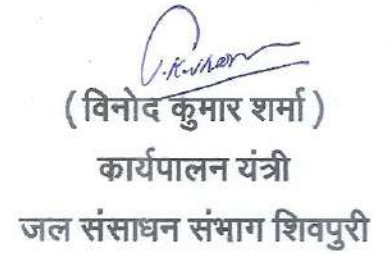 (विनोद कुमार शर्मा)
कार्यपालन यंत्री
जल संसाधन संभाग शिवपुरी